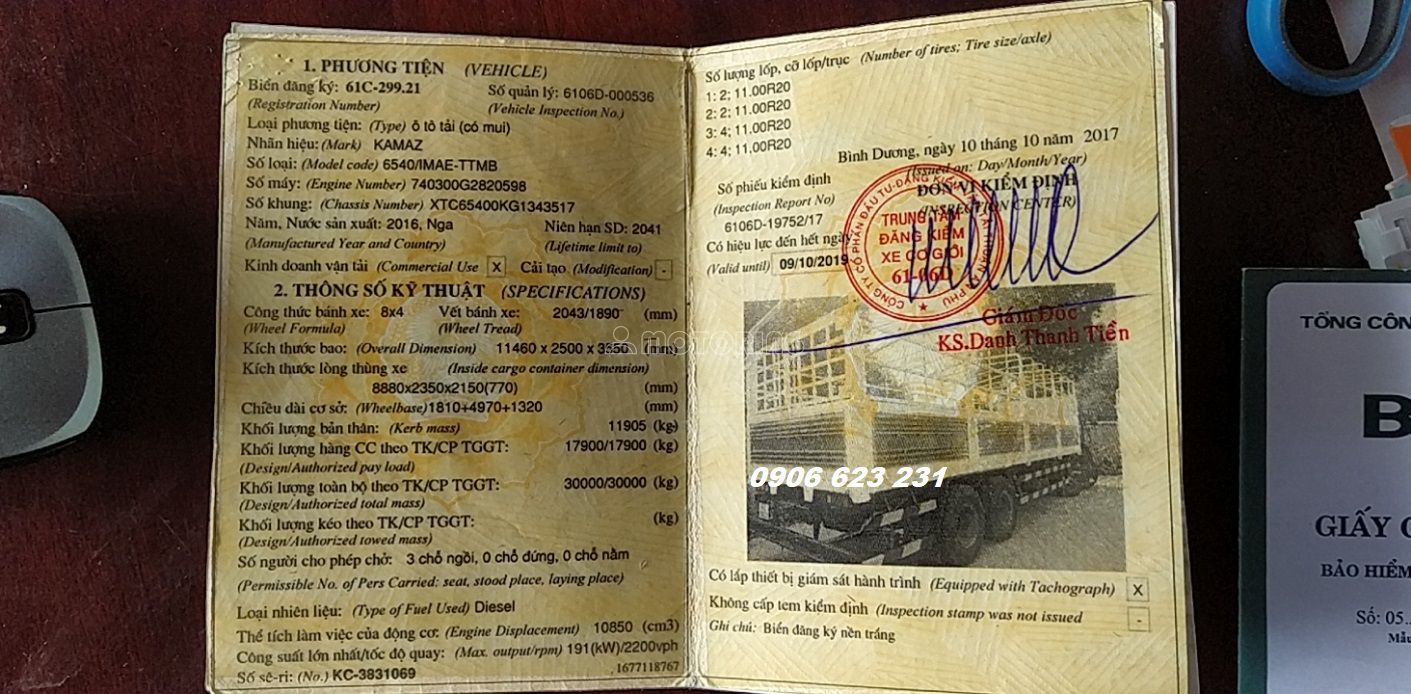 1. PHƯƠNG TIỆN (VEHICLE)
Biển đăng ký: 61C-299.21 Số quản lý: 6106D-000536
(Registration Number) (Vehicle Inspection No.)
Loại phương tiện: (Type) ô tô tải (có mui)
Nhãn hiệu: (Mark) KAMAZ
Số loại: (Model code) 6540/IMAE-TTMB
Số máy: (Engine Number) 740300G2820598
Số khung: (Chassis Number) XTC65400KG1343517
Năm, Nước sản xuất: 2016, Nga Niên hạn SD: 2041
(Manufactured Year and Country) (Lifetime limit to)
Kinh doanh vận tải (Commercial Use X Cải tạo (Modification) -
2. THÔNG SỐ KỸ THUẬT (SPECIFICATIONS)
Công thức bánh xe: 8x4 Vết bánh xe: 2043/1890 (mm)
(Wheel Formula) (Wheel Tread)
Kích thước bao: (Overall Dimension) 11460 x 2500 x 3350 (mm)
Kích thước lòng thùng xe (Inside cargo container dimension)
8880x2350x2150(770) (mm)
Chiều dài cơ sở: (Wheelbase) 1810+4970+1320 (mm)
Khối lượng bản thân: (Kerb mass) 11905 (kg)
Khối lượng hàng CC theo TK/CP TGGT: 17900/17900 (kg)
(Design/Authorized pay load)
Khối lượng toàn bộ theo TK/CP TGGT: 30000/30000 (kg)
(Design/Authorized total mass)
Khối lượng kéo theo TK/CP TGGT: (kg)
(Design/Authorized towed mass)
Số người cho phép chở: 3 chỗ ngồi, 0 chỗ đứng, 0 chỗ nằm
(Permissible No. of Pers Carried: seat, stood place, laying place)
Loại nhiên liệu: (Type of Fuel Used) Diesel
Thể tích làm việc của động cơ: (Engine Displacement) 10850 (cm3)
Công suất lớn nhất/tốc độ quay: (Max. output/rpm) 191(kW)/2200vph
Số sê-ri: (No.) KC-3831069 1677118767
Số lượng lốp, cỡ lốp/trục (Number of tires; Tire size/axle)
1: 2; 11.00R20
2: 2; 11.00R20
3: 4; 11.00R20
4: 4; 11.00R20
Bình Dương, ngày 10 tháng 10 năm 2017
(Issued on: Day/Month/Year)
Số phiếu kiểm định ĐƠN VỊ KIỂM ĐỊNH
(Inspection Report No) (INSPECTION CENTER)
6106D-19752/17
Có hiệu lực đến hết ngày
(Valid until) 09/10/2019
TRUNG TÂM
ĐĂNG KIỂM
XE CƠ GIỚI
61-06D
Giám Đốc
KS.Danh Thanh Tiền
MOTORING
0906 623 231
Có lắp thiết bị giám sát hành trình (Equipped with Tachograph) X
Không cấp tem kiểm định (Inspection stamp was not issued -
Ghi chú: Biển đăng ký nền trắng
TỔNG CÔN
B
GIẤY
BẢO HIỂM
Số: 05..
Mẫu